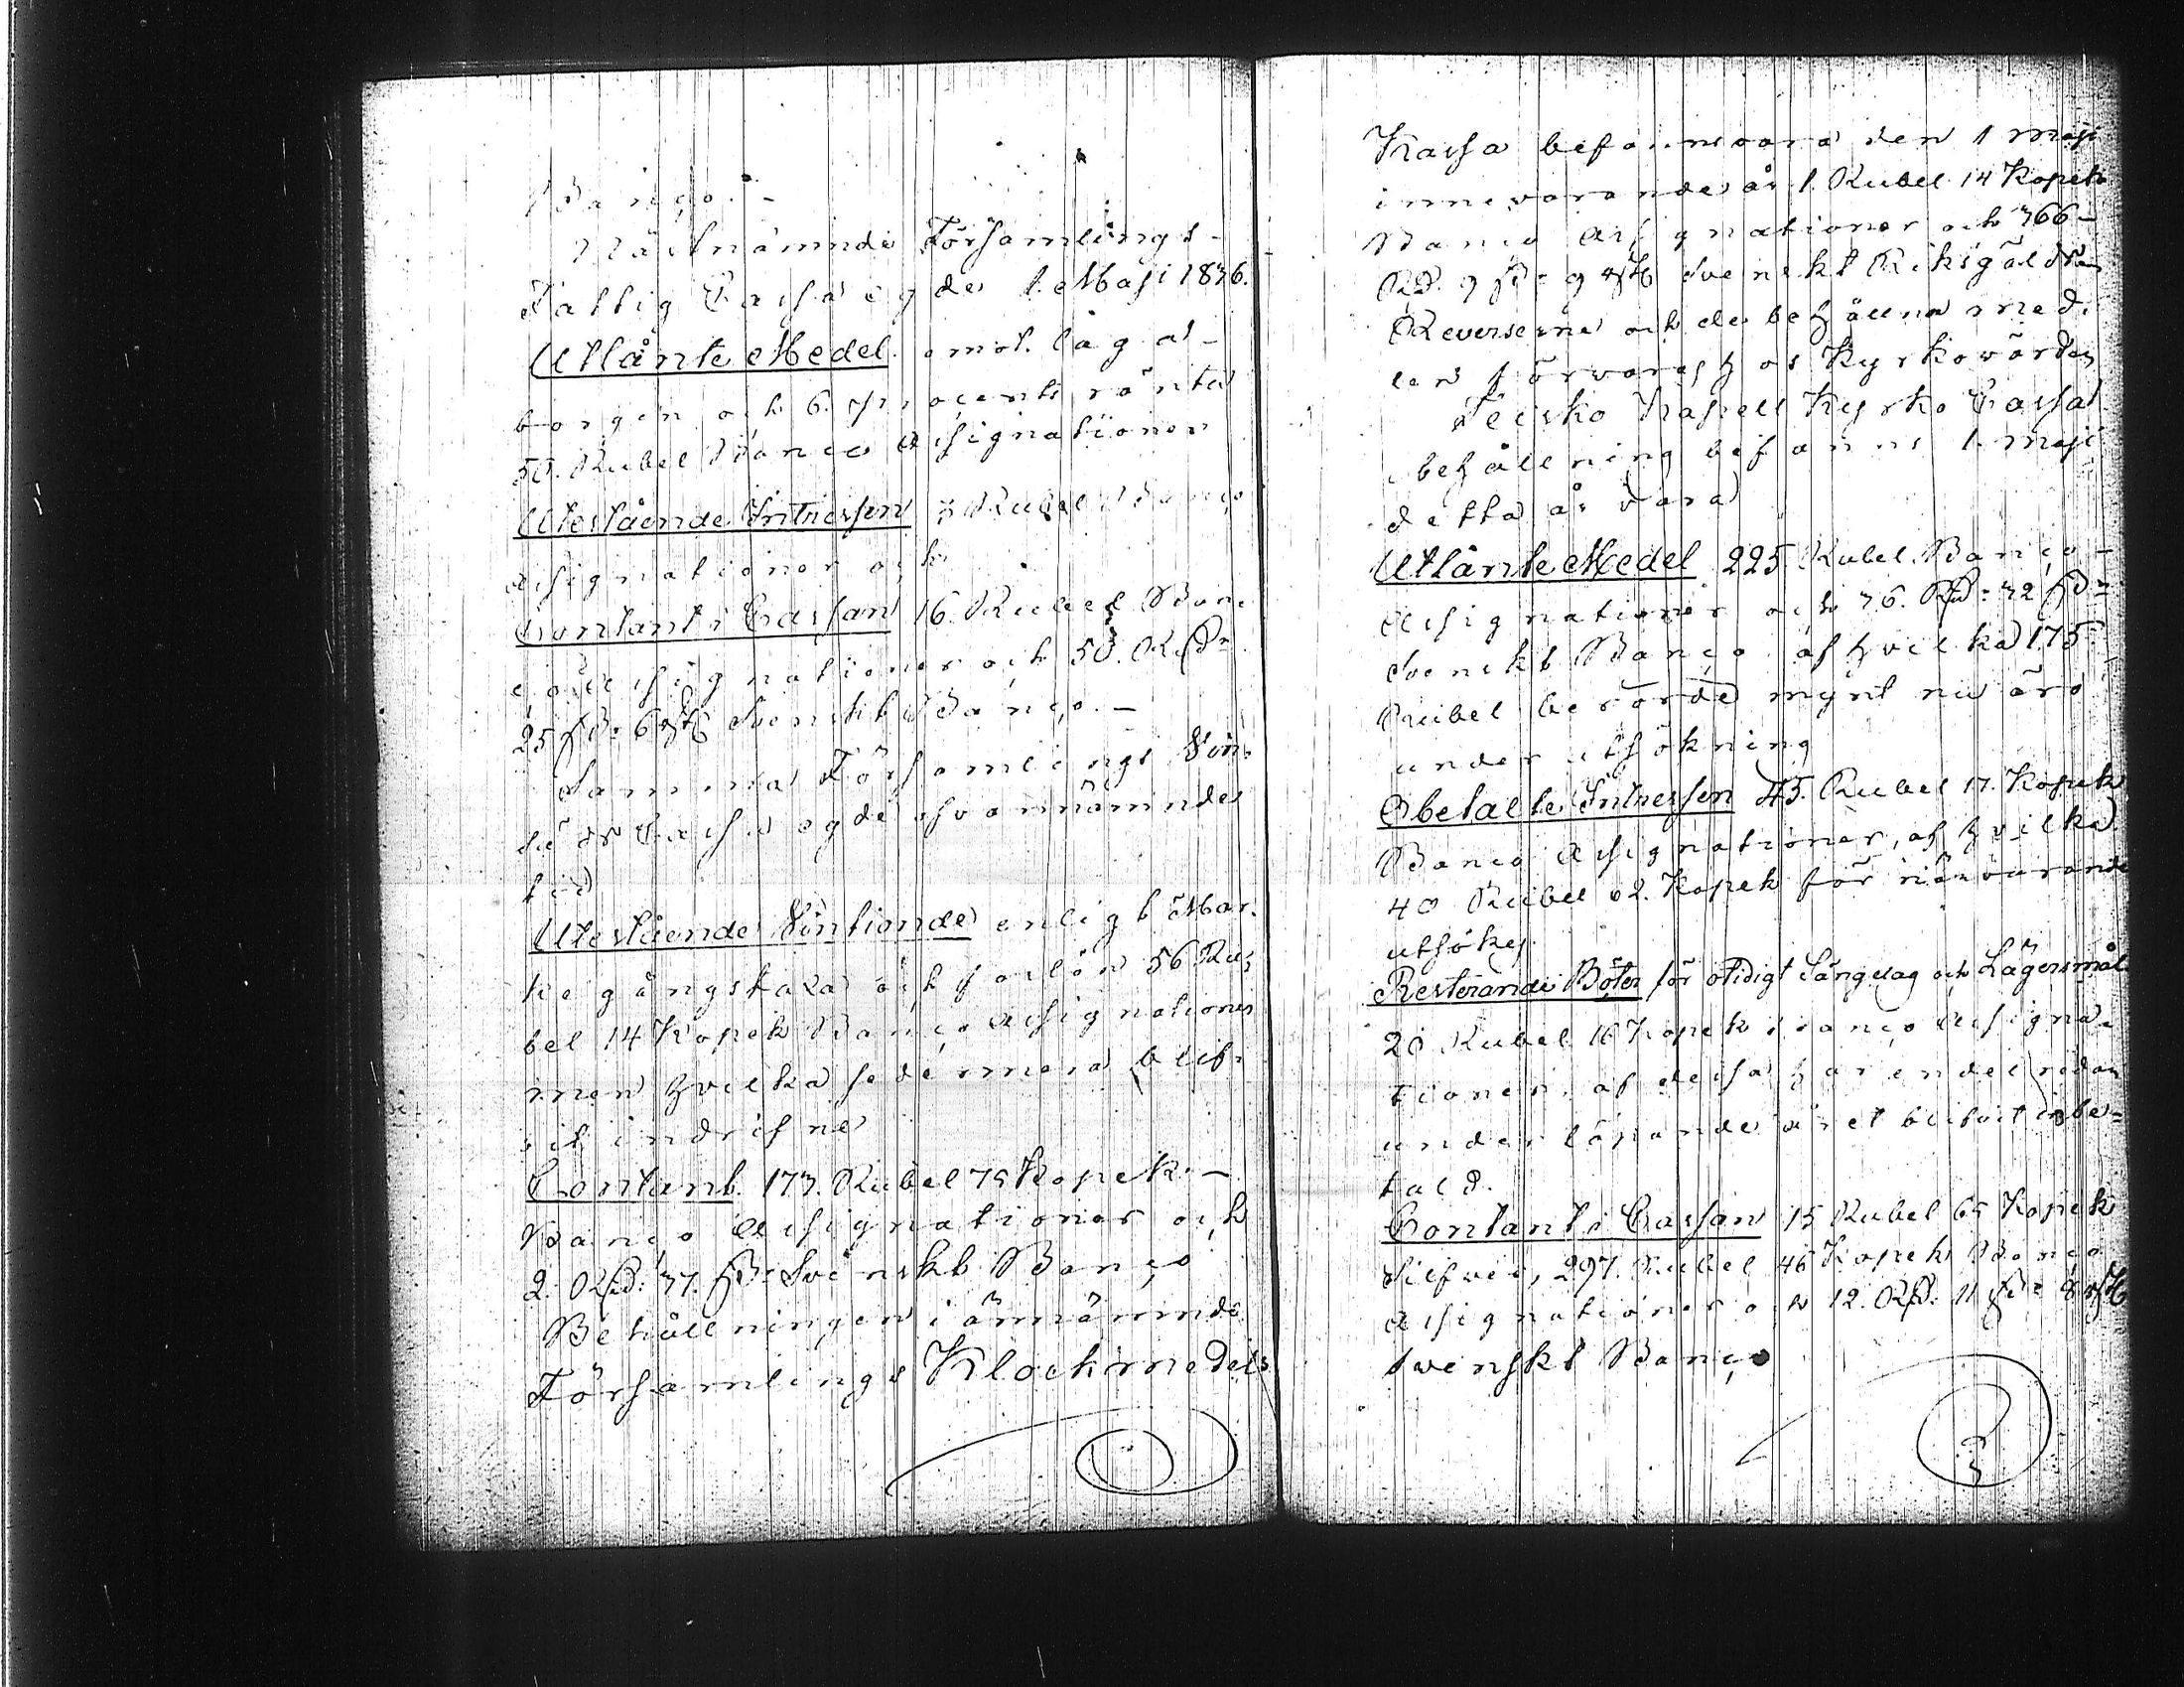 Banço. -
Näst nämnde Församlings-
Fattig Cassa egde 1. Maji 1836.
Utlånte Medel emot laga
borgen och 6. procents ränta
50. Rubel Banco Assignationer
Utestående Intressen 3 Rubel Banço
Assignationer och
Contant i Cassan 16. Rubel Ban-
ço Assignationer och 50. RD:
25 ß: 6 rst Svenskt Banço. -
Samma Församlings Spän-
måls Cassa egde ofvannämnde
tid
Utestående Tiontionde enligt Mar-
kegångstaxa och förlån 56 Ru-
bel 14 Kopek Banço Assignationer
men hvilka sedermera blif-
vit indrifne
Contant. 173. Rubel 75 Kopek -
Banço Assignationer och
2. RD: 37. ß: Svenskt Banço
Behållningen i ämnämnde
Församlings Klockmedels
Kassa befanns vara den 1 Maji
innevarande år 1. Rubel 14 Kopek
Banço Assignationer och 366-
RD. 9 ß: 9 rst Svenskt Riksgälds
Reverserne och de behållna med-
len förvaras hos Kyrkovärden
Kapell Kyrko Cassa
behållning befanns 1. Maji
detta år vara
Utlånte Medel 225. Rubel. Banço -
Assignationer och 36. RD: 32 ß:
Svenskt Banço af hvilka 175
Rubel berörde mynt nu äro
under utsökning
Obetalte Intressen 45. Rubel 17. Kopek
Banco Assignationer, af hvilka
40 Rubel 02. Kopek för närvarande
utsökes.
Resterande Böter för otidigt Sängelag och Lägersmål
20 Rubel 16 Kopek Banço Assigna-
tioner. af dessa har en del redan
under löpande året blifvit inbe-
tald.
Contant i Cassan 15 Rubel 65 Kopek
Silfver, 297. Rubel 46 Kopek Banço
Assignationer och 12. RD. 11 ß: 8 rst
Swenskt Banço